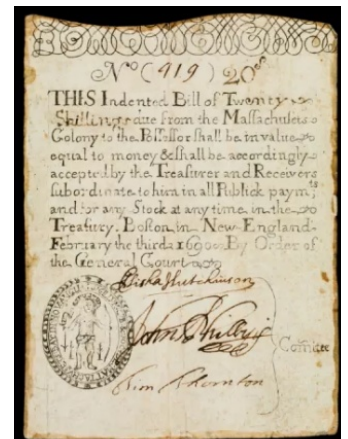 No (919) 20s
THIS Indented Bill of Twenty
Shillings due from the Massachusets
Colony to the Possessor shall be in value
equal to money & shall be accordingly
accepted by the Treasurer and Receivers
subordinate to him in all Publick paymts
and for any Stock at any time in the
Treasury. Boston in New-England
February the third 1690. By Order of
the General Court
Elisha Hutchinson
John Phillips
Tim Thornton
Comitee